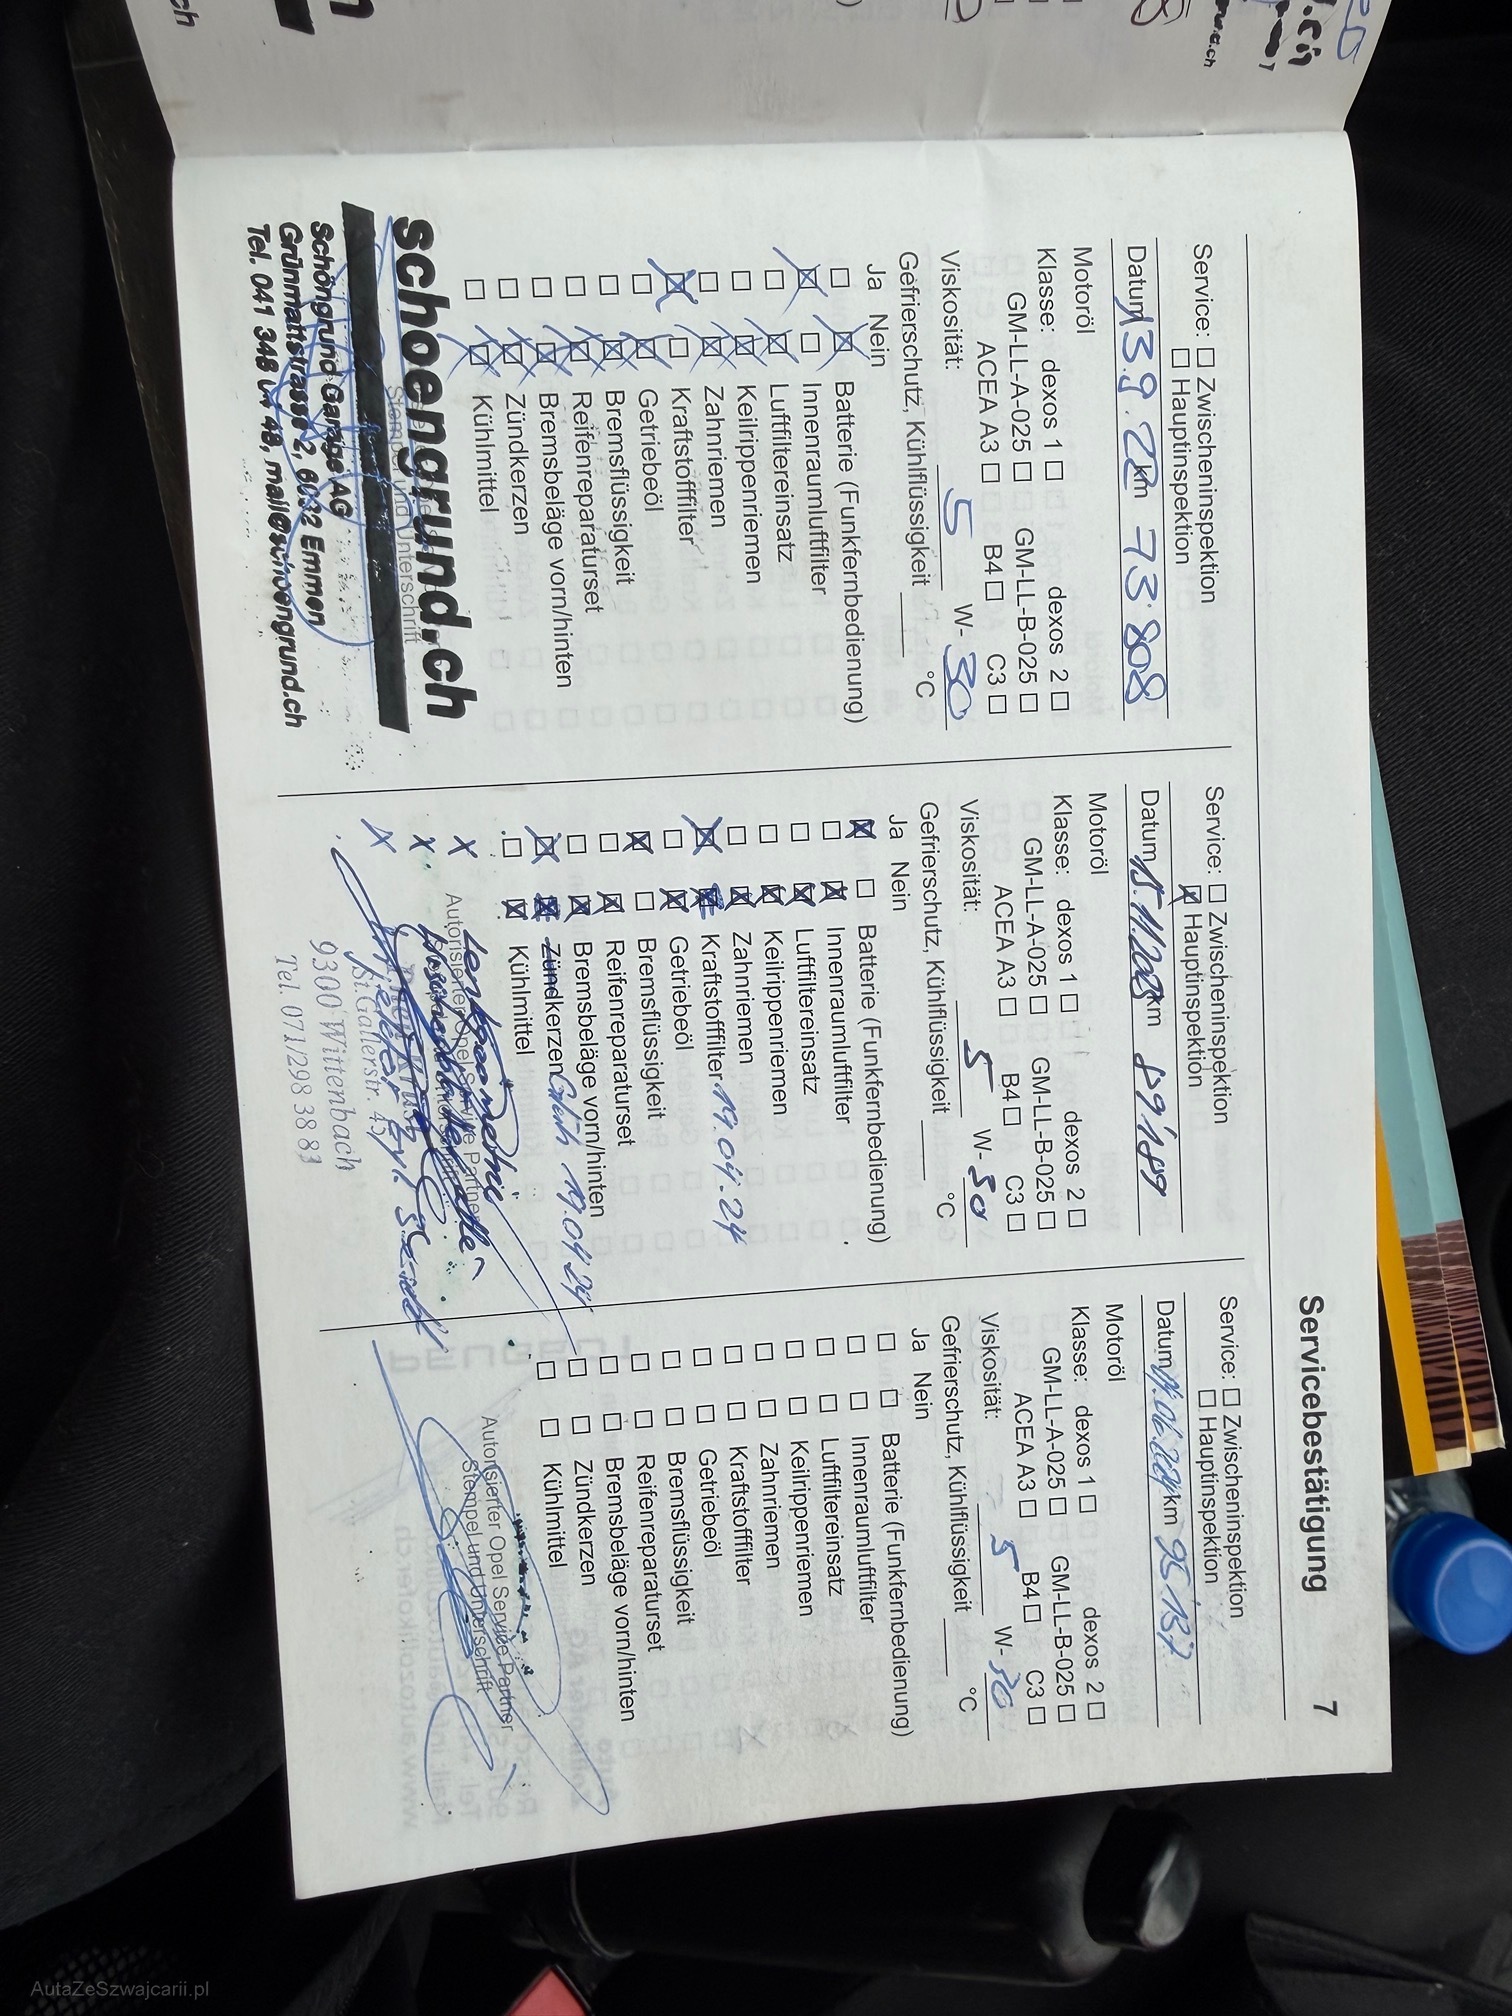 Servicebestätigung 7
Service: Zwischeninspektion
Hauptinspektion
Datum 13.9.22 km 73'808
Motoröl
Klasse: dexos 1 dexos 2
GM-LL-A-025 GM-LL-B-025
ACEA A3 B4 C3
Viskosität: 5 W- 30
Gefrierschutz, Kühlflüssigkeit °C
Ja Nein
Batterie (Funkfernbedienung)
Innenraumluftfilter
Luftfiltereinsatz
Keilrippenriemen
Zahnriemen
Kraftstofffilter
Getriebeöl
Bremsflüssigkeit
Reifenreparaturset
Bremsbeläge vorn/hinten
Zündkerzen
Kühlmittel
Stempel und Unterschrift
schoengrund.ch
Schöngrund Garage AG
Grünmattstrasse 2, 6032 Emmen
Tel. 041 348 48,
Service: Zwischeninspektion
Hauptinspektion
Datum 15.11.2023 km 89'189
Motoröl
Klasse: dexos 1 dexos 2
GM-LL-A-025 GM-LL-B-025
ACEA A3 B4 C3
Viskosität: 5 W- 30
Gefrierschutz, Kühlflüssigkeit °C
Ja Nein
Batterie (Funkfernbedienung)
Innenraumluftfilter
Luftfiltereinsatz
Keilrippenriemen
Zahnriemen
Kraftstofffilter 19.04.24
Getriebeöl
Bremsflüssigkeit
Reifenreparaturset
Bremsbeläge vorn/hinten
Zündkerzen 19.04.24
Kühlmittel
Autorisierter Opel Service Partner
St.Gallerstr.
9300 Wittenbach
Tel. 071/298 38 83
Service: Zwischeninspektion
Hauptinspektion
Datum km 95'137
Motoröl
Klasse: dexos 1 dexos 2
GM-LL-A-025 GM-LL-B-025
ACEA A3 B4 C3
Viskosität: 5 W- 30
Gefrierschutz, Kühlflüssigkeit °C
Ja Nein
Batterie (Funkfernbedienung)
Innenraumluftfilter
Luftfiltereinsatz
Keilrippenriemen
Zahnriemen
Kraftstofffilter
Getriebeöl
Bremsflüssigkeit
Reifenreparaturset
Bremsbeläge vorn/hinten
Zündkerzen
Kühlmittel
Autorisierter Opel Service Partner
Stempel und Unterschrift
AutaZeSzwajcarii.pl